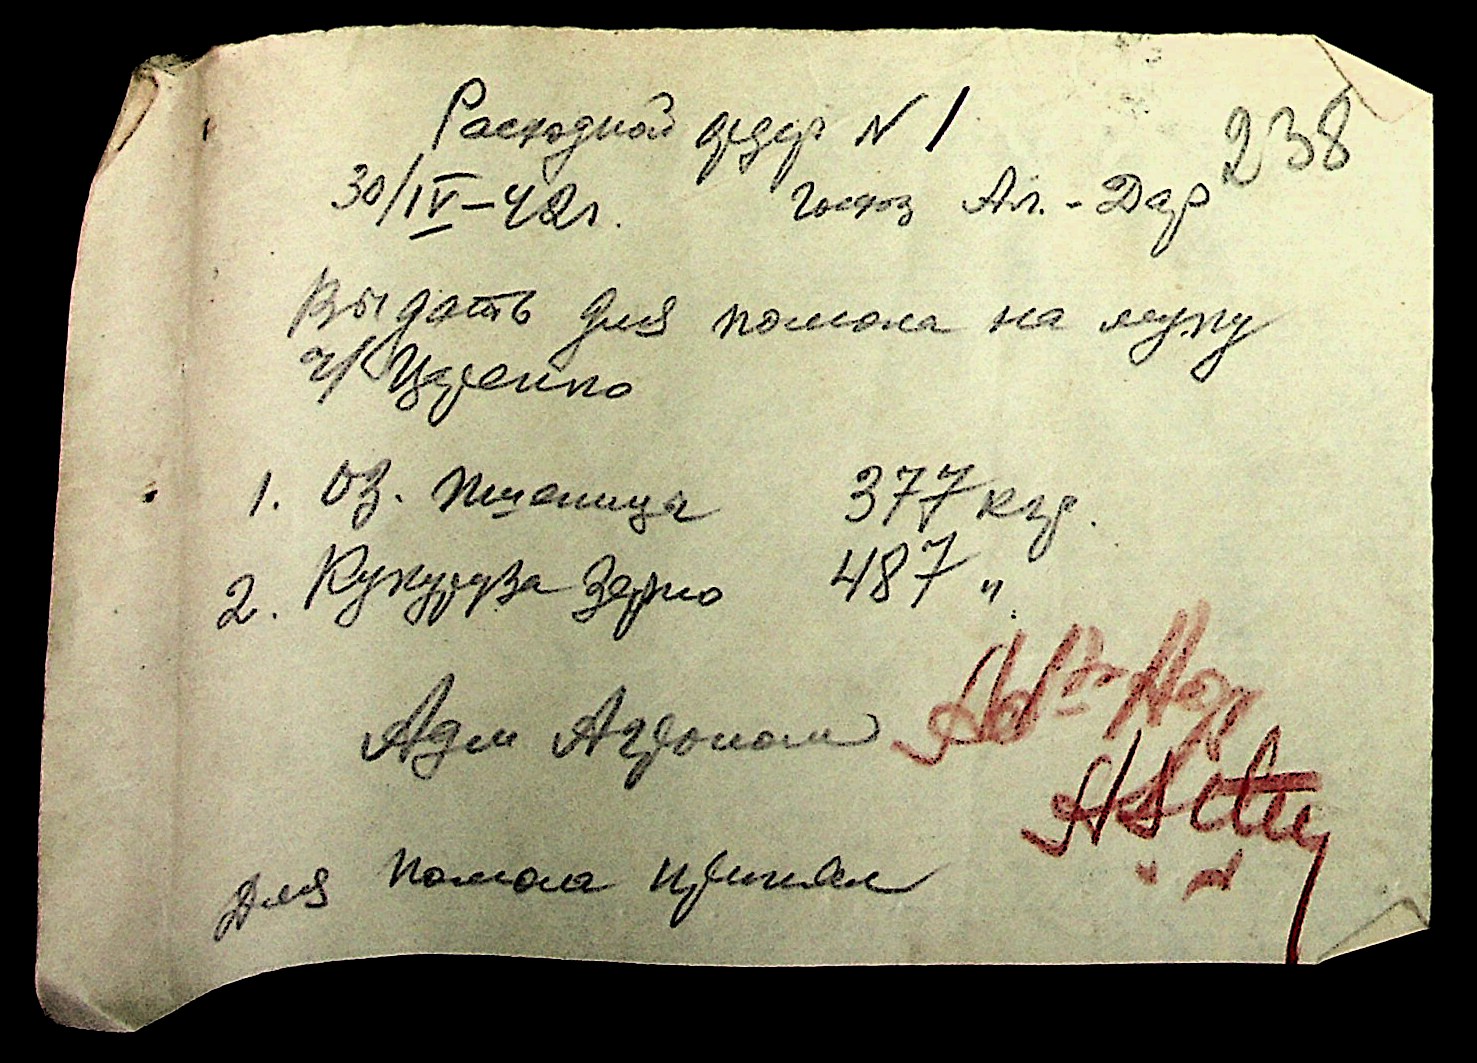 Расходной ордер N 1
238
30/IV-42г. Госхоз Ал.-Дар
Выдать для помола на муку
ч/ Царенко
1. Оз. пшеницы 377 кгр.
2. Кукуруза зерно 487 "
Адм Агроном
Для помола принял